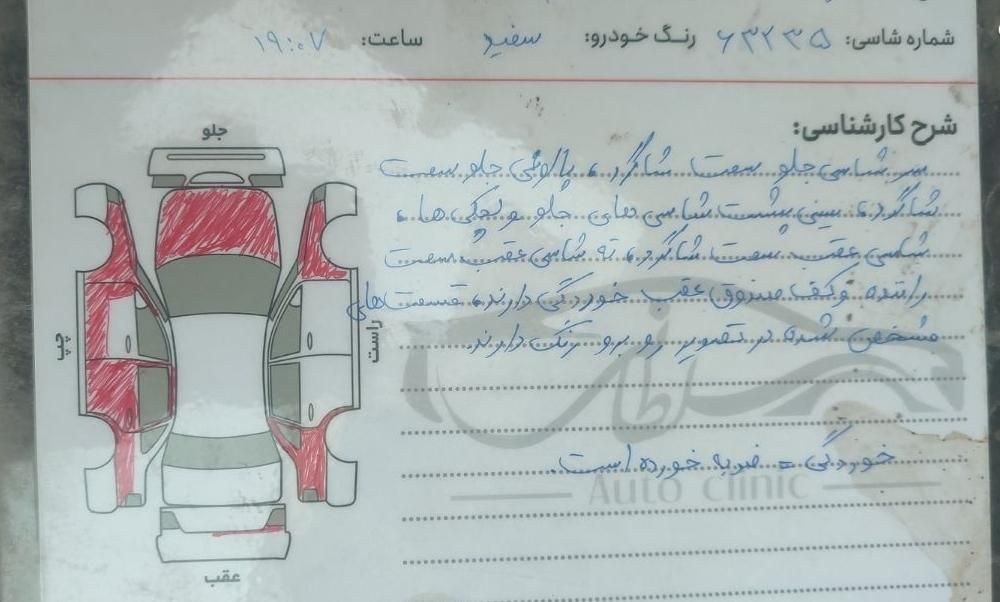 شماره شاسی: ۶۳۲۳۵ رنگ خودرو: سفید ساعت: ۱۹:۰۷
شرح کارشناسی:
سر شاسی جلو سمت شاگرد، پالونی جلو سمت
شاگرد، سینی پشت شاسی های جلو و پیچکی ها،
شاسی عقب سمت شاگرد، ته شاسی عقب سمت
راننده وکف صندوق عقب خوردگی دارند، قسمت های
مشخص شده در تصویر رو برو رنگ دارند.
خوردگی = ضربه خورده است.
جلو
چپ
راست
عقب
سلطان
Auto clinic